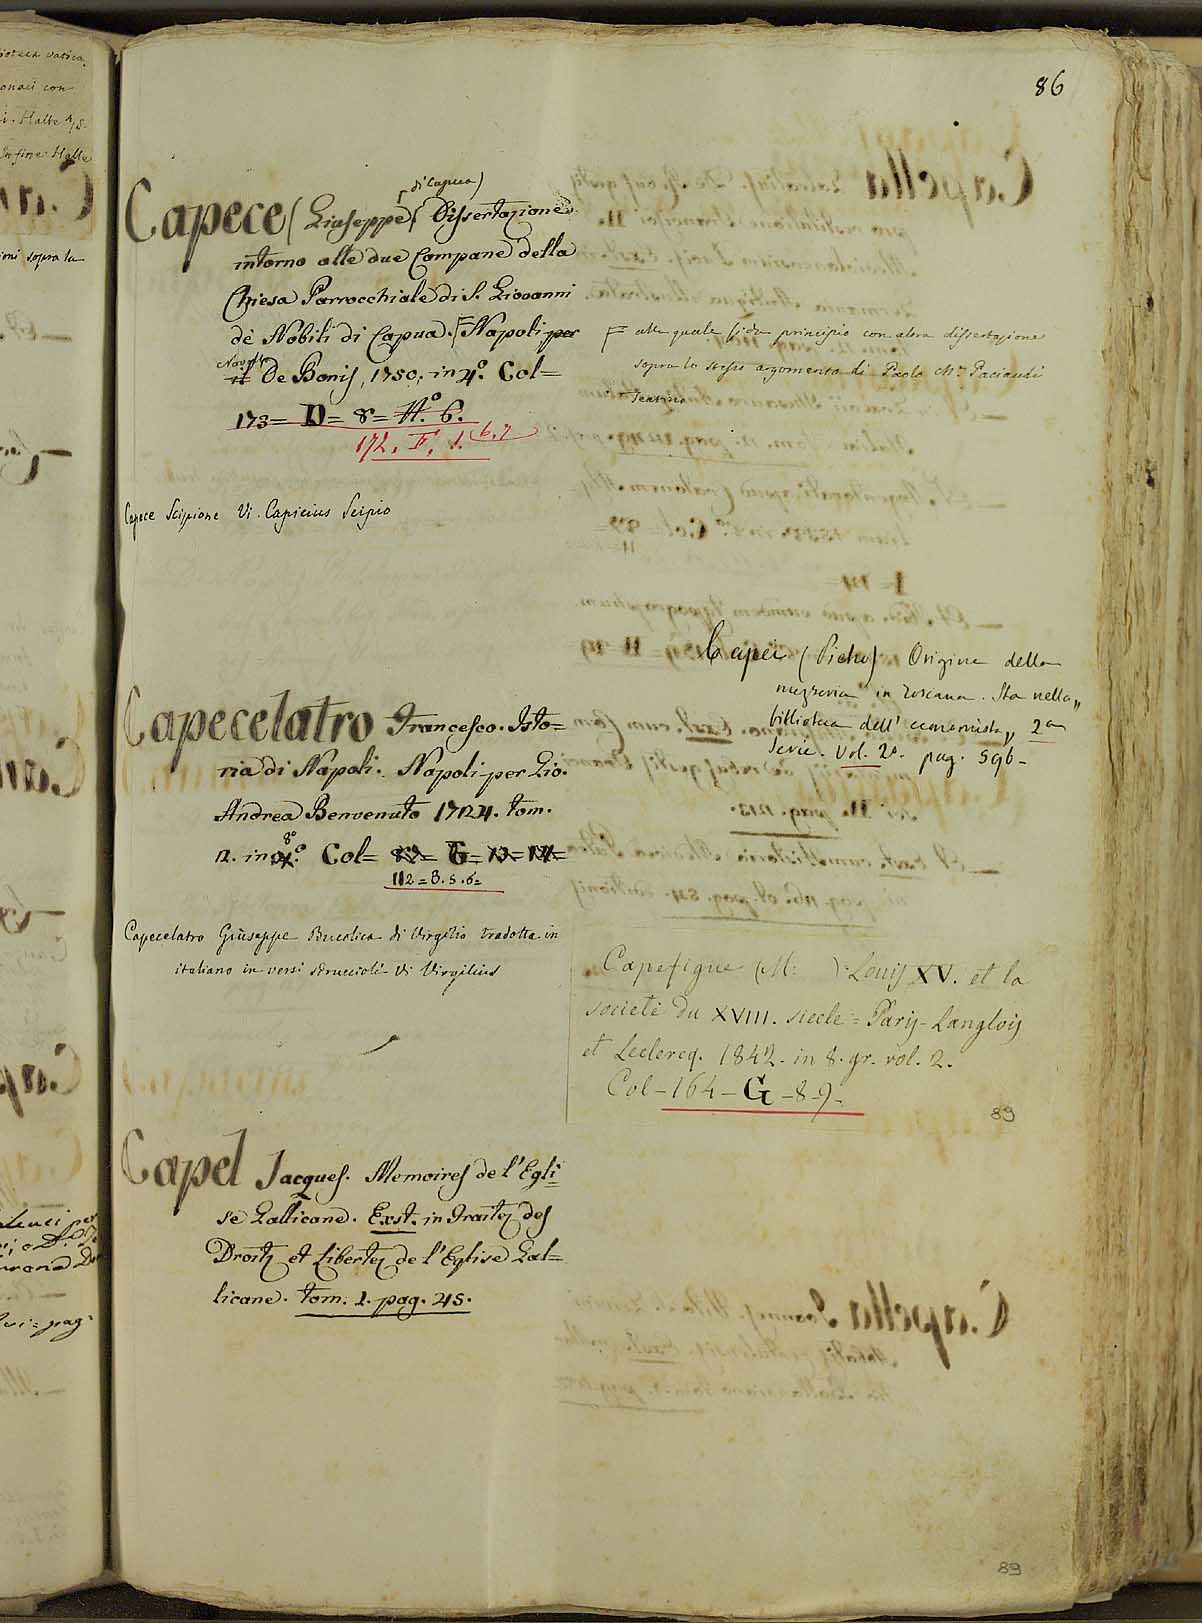 86
di Capua)
Capece (Giuseppe) Dissertazione
intorno alle due Campane della
Chiesa Parrocchiale di S. Giovanni
dè Nobili di Capua. Napoli per
Novello
il De Bonis, 1750, in 4º. Col=
173= D= 8= A.º 6.
172. F. 1. 6.7
= alla quale si dà principio con altra dissertazione
sopra lo stesso argomento di Paolo Mª. Paciaudi
Teatino
Capece Scipione Vi. Capicius Scipio
Capei (Pietro) Origine della
mezzeria in Toscana. Sta nella „
biblioteca dell' economista „ 2ª
Serie. Vol. 2º. pag. 596-
Capecelatro Francesco. Isto=
ria di Napoli. Napoli per Gio.
Andrea Benvenuto 1724. tom.
8º
2. in 4º. Col=
112=B.5.6=
Capecelatro Giuseppe Bucolica di Virgilio tradotta in
italiano in versi sdruccioli Vi Virgilius
Capefigue (M: ) Louis XV. et la
societè du XVIII. siecle = Paris- Langlois
et Leclercq. 1842. in 8. gr. vol. 2.
Col-164-G-8-9-
89
Capel Jacques. Memoires de l'Egli=
se Gallicane. Exst. in Traitez des
Droitz et Libertez de l'Eglise Gal=
licane. tom. 1. pag. 45.
89